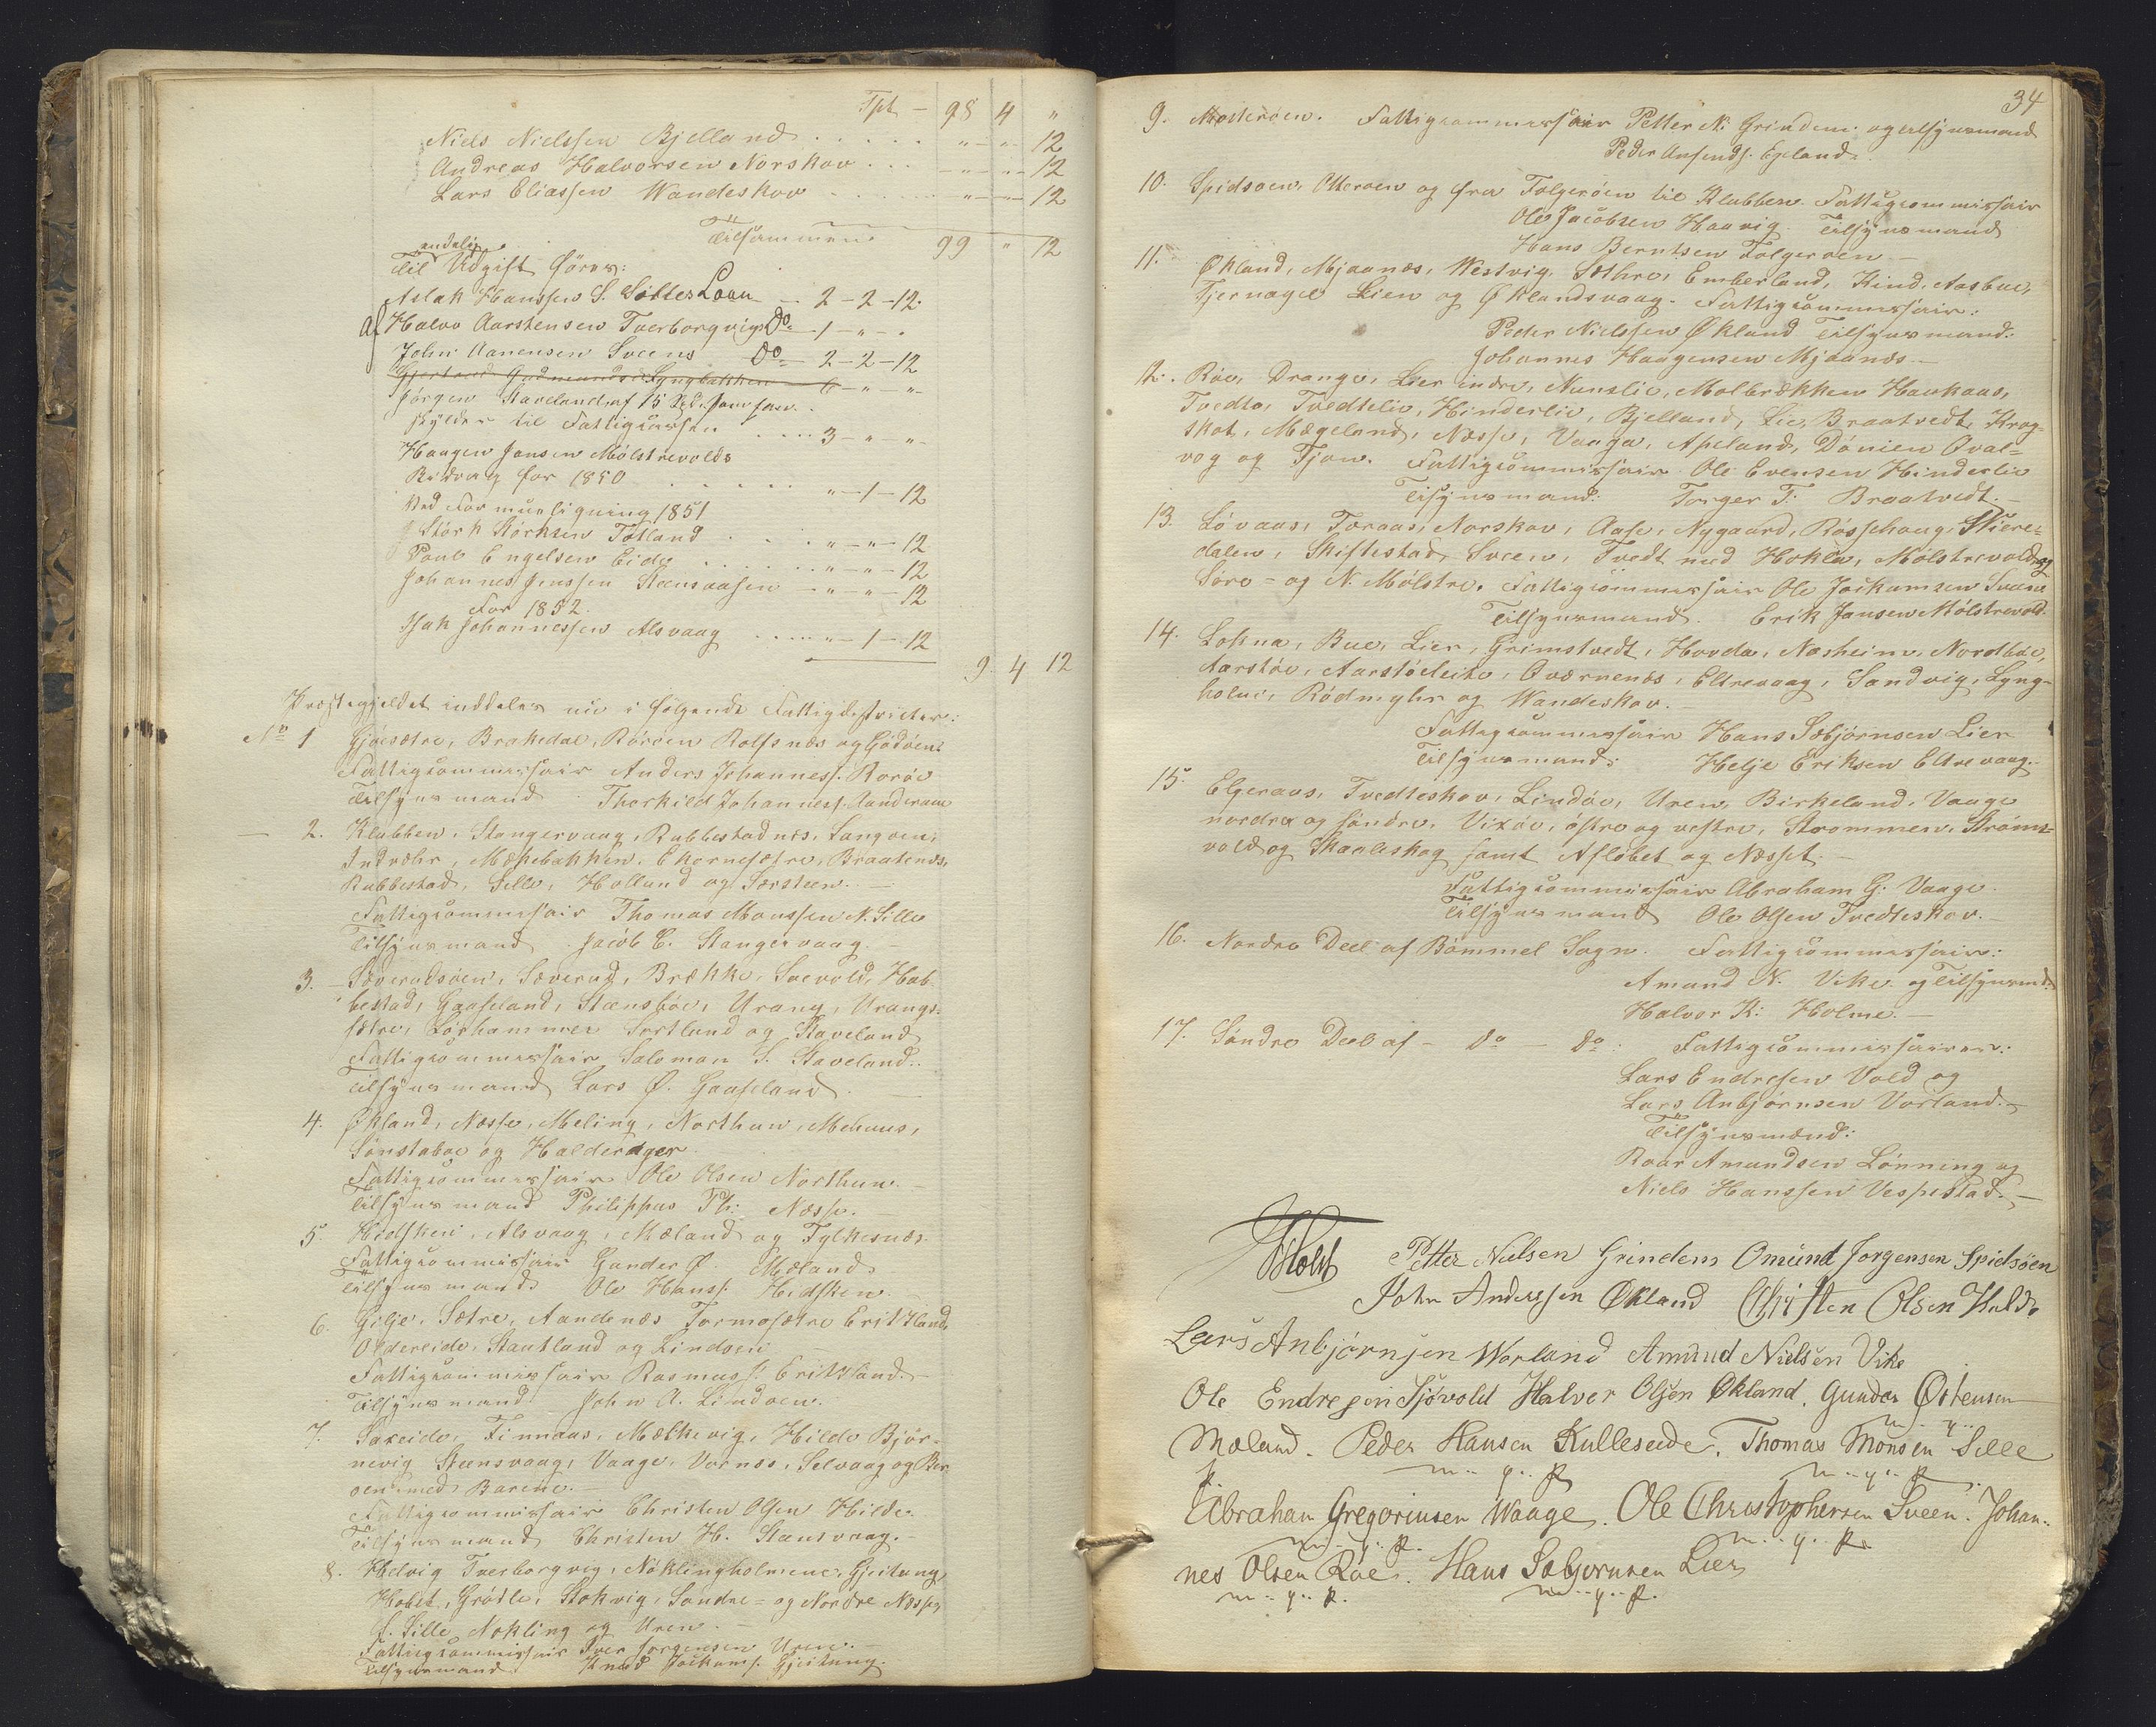 Tpt – 98 4 "
Niels Nielssen Bjelland . . . . " – " – 12
Andreas Halvorsen Norskov . . . – " – " – 12
Lars Eliassen Wandeskov . . . – " – " – 12
Tilsammen 99 " 12
endelig
Til Udgift föres:
Aslak Hanssen S. Sölles Laan – 2 – 2 – 12.
af Halvo Aarstensen Tverborgvigs Do – 1 – " – "
John Aanensen Sveens Do – 2 – 2 – 12
Gjertrud Gudmundsd. Lyngbakken – 6 – " – "
Jörgen Staveland, af 15 Spd. som han
skylder til Fattigcassen . . . 3 – " – "
Haagen Jansen Mölstrevolds
Bidrag for 1850 . . . . . . " – 1 – 12
Ved Formuesligning 1851
Störk Störksen Totland . . . " – " – 12
Poul Engelsen Eide . . . . . . " – " – 12
Johannes Jenssen Steensaasen – " – " – 12
For 1852.
Isak Johannessen Alsvaag . . . . " – 1 – 12
9. 4 12
Præstegjeldet inddeles nu i følgende Fattigdistricter:
No 1 Gjøsætre, Brakedal, Röröen Rolfsnæs og Gödöen.
Fattigcommissair Anders Johanness. Roröe
Tilsynsmand Thorkild Johanness.
– 2. Klubben, Stangervaag, Rubbestadnæs, Langöen,
Indvær, Mæhlebakken, Ekornesætre, Braatenæs,
Rubbestad, Sille, Holland og Sorsteen. –
Fattigcommissair Thomas Monssen N. Sille
Tilsynsmand Jacob E. Stangervaag. –
3. Sæverudsöen, Sæverud, Brække, Soevold, Hub-
bestad, Gaaseland, Steensböe, Urang, Urangs-
sætre, Lörhammer Sortland og Staveland
Fattigcommissair Salomon S. Staveland.
Tilsynsmand Lars Ø. Gaaseland. –
4. Økland, Næsse, Meling, Northun, Mehuus,
Sønstaboe og Halderager
Fattigcommissair Ole Olsen Northun. –
Tilsynsmand Philippus Ph: Næsse. –
5. Hidskeu, Alsvaag, Mæland og Fylkesnæs.
Fattigcommissair Gunder Ø. Mæland.
Tilsynsmand Ole Hanss. Hidsken. –
6. Gilje, Sætre, Aandenæs Tormosætre Eritsland,
Oldereide, Stautland og Lindöen
Fattigcommissair Rasmus J. Eritsland. –
Tilsynsmand John A. Lindøen.
7. Saxeide, Finnaas, Mælkevig, Hilde Björ-
nevig Steensvaag, Vaage, Vornæs, Selvaag og Ber
oen med Barene. –
Fattigcommissair Christen Olsen Hilde.
Tilsynsmand Christen H. Stensvaag. –
8. Helvig Tverborgvig, Nöklingholmene, Gjeitung
Hobet, Grötle, Stokvig, Söndre- og Nordre Næsse,
S. Sille Nokling og Uren. –
Fattigcommissair Iver Jorgensen Uren. –
Tilsynsmand Knud Jockums. Gjeitung.
34
9. Mosteröen. Fattigcommissair Petter N. Grindem og tilsynsmand
Peder Amunds. Egeland.
10. Spidsoen, Otteröen og fra Folgeröen til Klubben. Fattigcommissair
Ole Jacobsen Haavig. Tilsynsmand
Hans Berntsen Folgeröen. –
11. Økland, Mjaanæs, Westvig, Sæthre, Emberland, Kind, Aasbue,
Tjernagel Lien og Øklandsvaag. Fattigcommissair:
Peder Nielssen Økland Tilsynsmand:
Johannes Haagensen Mjaanæs. –
12. Röe, Drange, Lier indre, Nunslie, Molbrækken Haukaas,
Tvedta, Tvedtelie, Hinderlie, Bjelland, Lie, Braatvedt, Krog-
skot, Mægeland, Næsse, Vaaga, Apeland, Dönien Qval-
vog og Tjon. Fattigcommissair Ole Evensen Hinderlie
Tilsynsmand: Torger T. Braatvedt. –
13. Lövaas, Toraas, Norskov, Aase, Nygaard, Rössehaug, Stiere-
dalen, Skiftestad, Sveen, Tvedt med Hokla, Mölstrevold og
Söre- og N. Mölstre. Fattigcommissair Ole Jockumsen Sveen
Tilsynsmand. Erik Jansen Mölstrevold.
14. Lohna, Bue, Lier, Grimstvedt, Hovda, Næsheim, Nordböe,
Aarsköe, Aarsköeleite, Qværnenæs, Eltrevaag, Sandvig, Lyng-
holm, Rödmyhr og Wandeskov. –
Fattigcommissair Hans Sæbjörnsen Lier
Tilsynsmand: Helje Eriksen Eltrevaag.
15. Elgeraas, Tvedteskov, Lindöe, Uren, Birkeland, Vaage
nordre og söndre, Vixöe, östre og vestre, Strommen, Ströms-
vold og Skaaleskog samt Aflöbet og Næsset. –
Fattigcommissair Abraham G. Vaage.
Tilsynsmand Ole Olsen Tvedteskov. –
16. Nordre Deel af Bömmel Sogn. Fattigcommissair:
Amund N. Vike og Tilsynsmd.
Halvor K: Holme. –
17. Söndre Deel af – do – do: Fattigcommissairer:
Lars Endresen Vold og
Lars Anbjörnsen Vorland. –
Tilsynsmænd:
Roar Amundsen Lönning og
Niels Hanssen Vespestad. –
Holst Petter Nielsen Grindem Omund Jorgensen Spidsöen
John Anderssen Økland Christen Olsen Hilde
Lars Anbjörnsen Worland Amund Nielsen Vike
Ole Endresen Sjövold Halvor Olsen Økland. Gunder Østensen
Mæland. Peder Hansen Kulleseide. Thomas Monsen Selle
m. p. P. m. p. P.
Abraham Gregoriusen Waage. Ole Christophersen Sveen. Johan-
m. p. P. m. p. P.
nes Olsen Röe. Hans Sæbjornsen Lier
m. p. P. m. p. P.